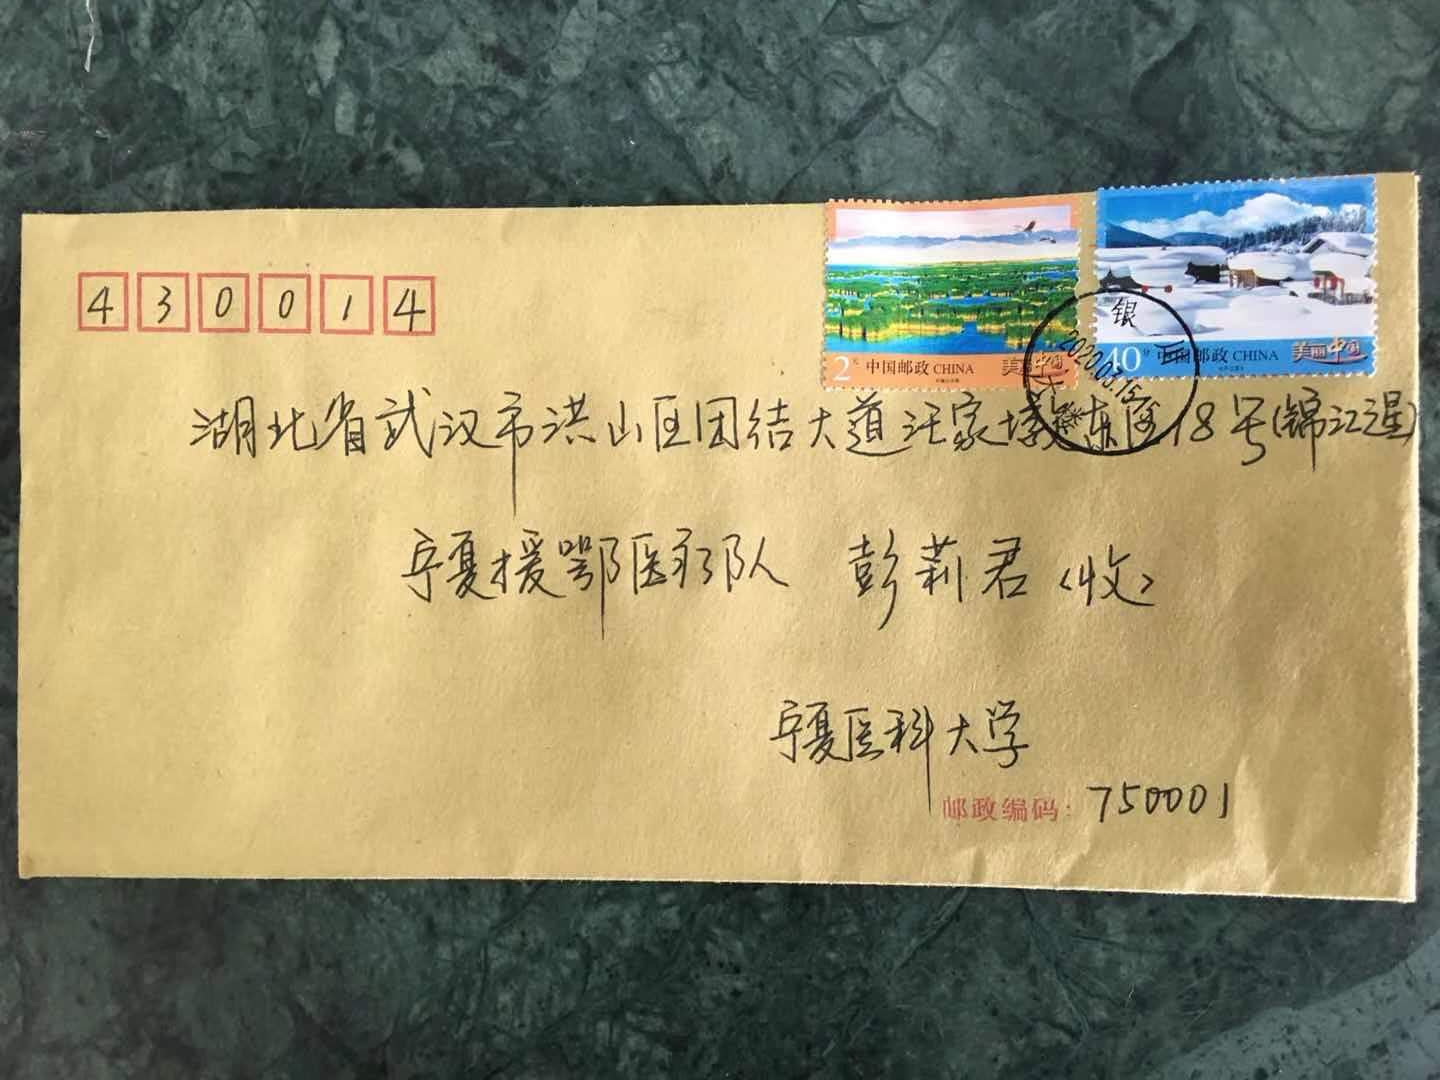 2元 中国邮政 CHINA 美丽中国
40分 中国邮政 CHINA 美丽中国
银川
2020.03.15
430014
湖北省武汉市洪山区团结大道汪家墩东区18号(锦江之星)
宁夏援鄂医疗队 彭莉君(收)
宁夏医科大学
邮政编码: 750001